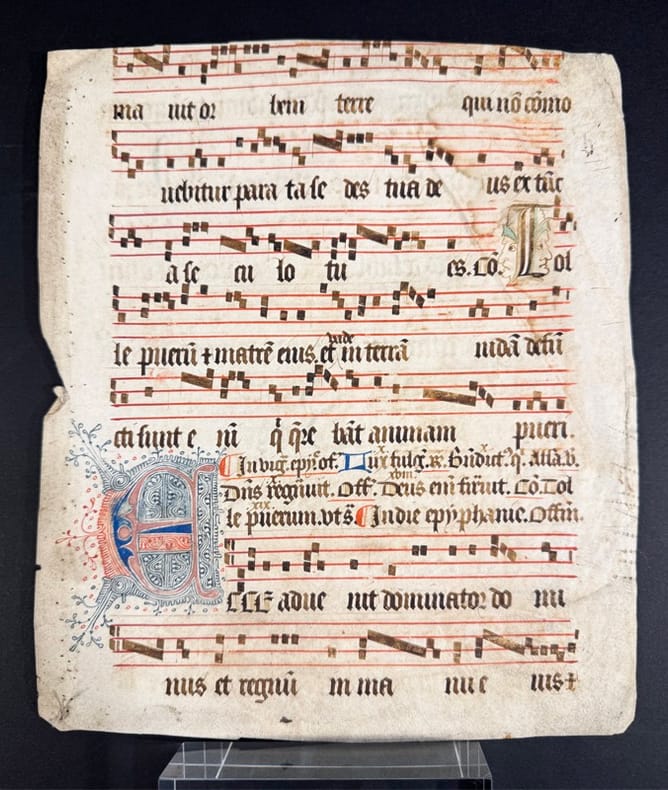 ma uit or bem terre qui nō cōmo
uebitur para ta se des tua de us ex tūc
a se cu lo tu es. Cō. Tol
le puerū + matrē eius. et uade in terrā iudā defū
cti sunt e nī q̄ q̄re bāt animam pueri.
In vig. epyꝰ of. Lux fulg. R. Bn̄dictꝰ q. Alla. v.
Dn̄s regnauit. Off. Deus enī firuit. Cō. Tol
le puerum. vt s̄. In die epyphanie. Offm̄.
ECCE adue nit dominator do mi
nus et regnū in ma nu e ius +